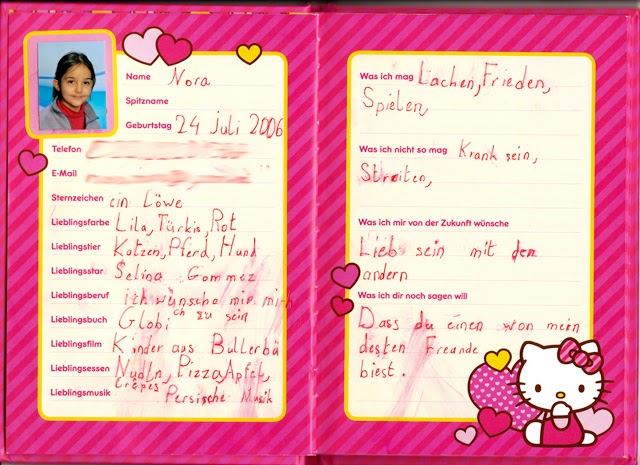 Name Nora
Spitzname
Geburtstag 24 Juli 2006
Telefon
E-Mail
Sternzeichen ein Löwe
Lieblingsfarbe Lila, Türkis, Rot
Lieblingstier Katzen, Pferd, Hund
Lieblingsstar Selina Gommez
Lieblingsberuf ich wünsche mir
ch zu sein
Lieblingsbuch Globi
Lieblingsfilm Kinder aus Bullerbü
Lieblingsessen Nudln, Pizza, Apfel,
Crêpes
Lieblingsmusik Persische Musik
Was ich mag Lachen, Frieden,
Spielen,
Was ich nicht so mag Krank sein,
Streiten,
Was ich mir von der Zukunft wünsche
Lieb sein mit den
andern
Was ich dir noch sagen will
Dass du einen von mein
besten Freunde
biest.